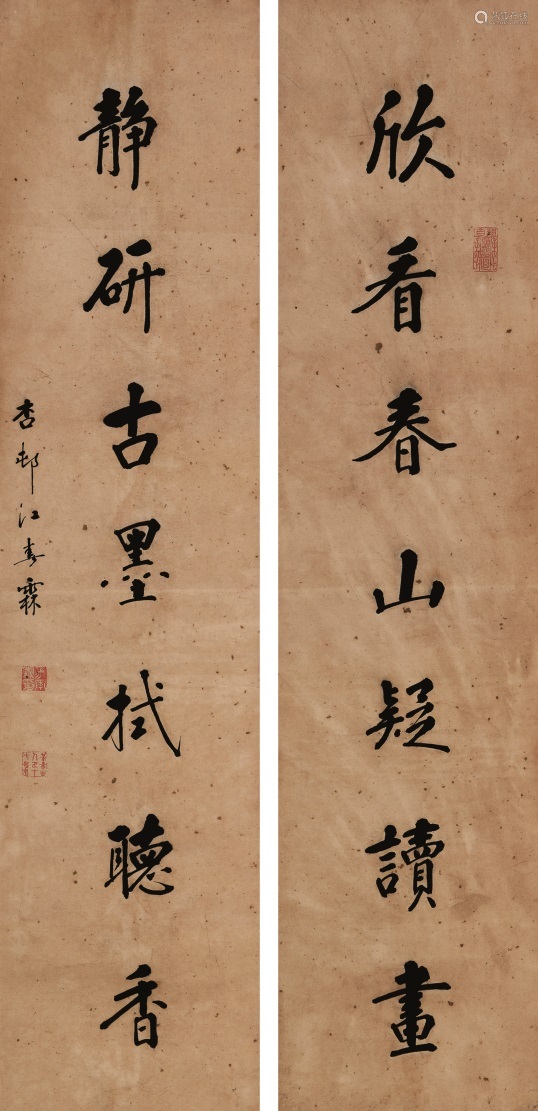 欣看春山疑讀畫
静研古墨拭聽香
杏邨江春霖